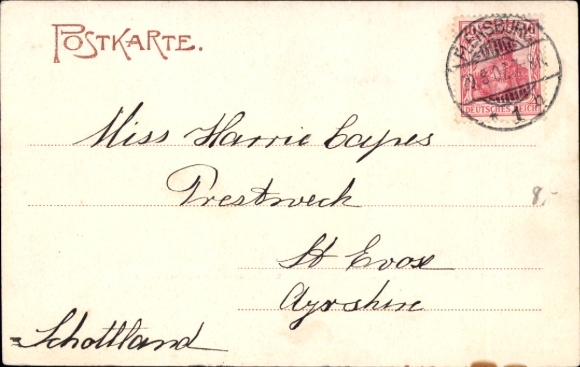 POSTKARTE.
FLENSBURG
* 1
DEUTSCHES REICH
Miss Harrie Capes
Prestweck
8,-
St Evox
Ayrshire
Schottland